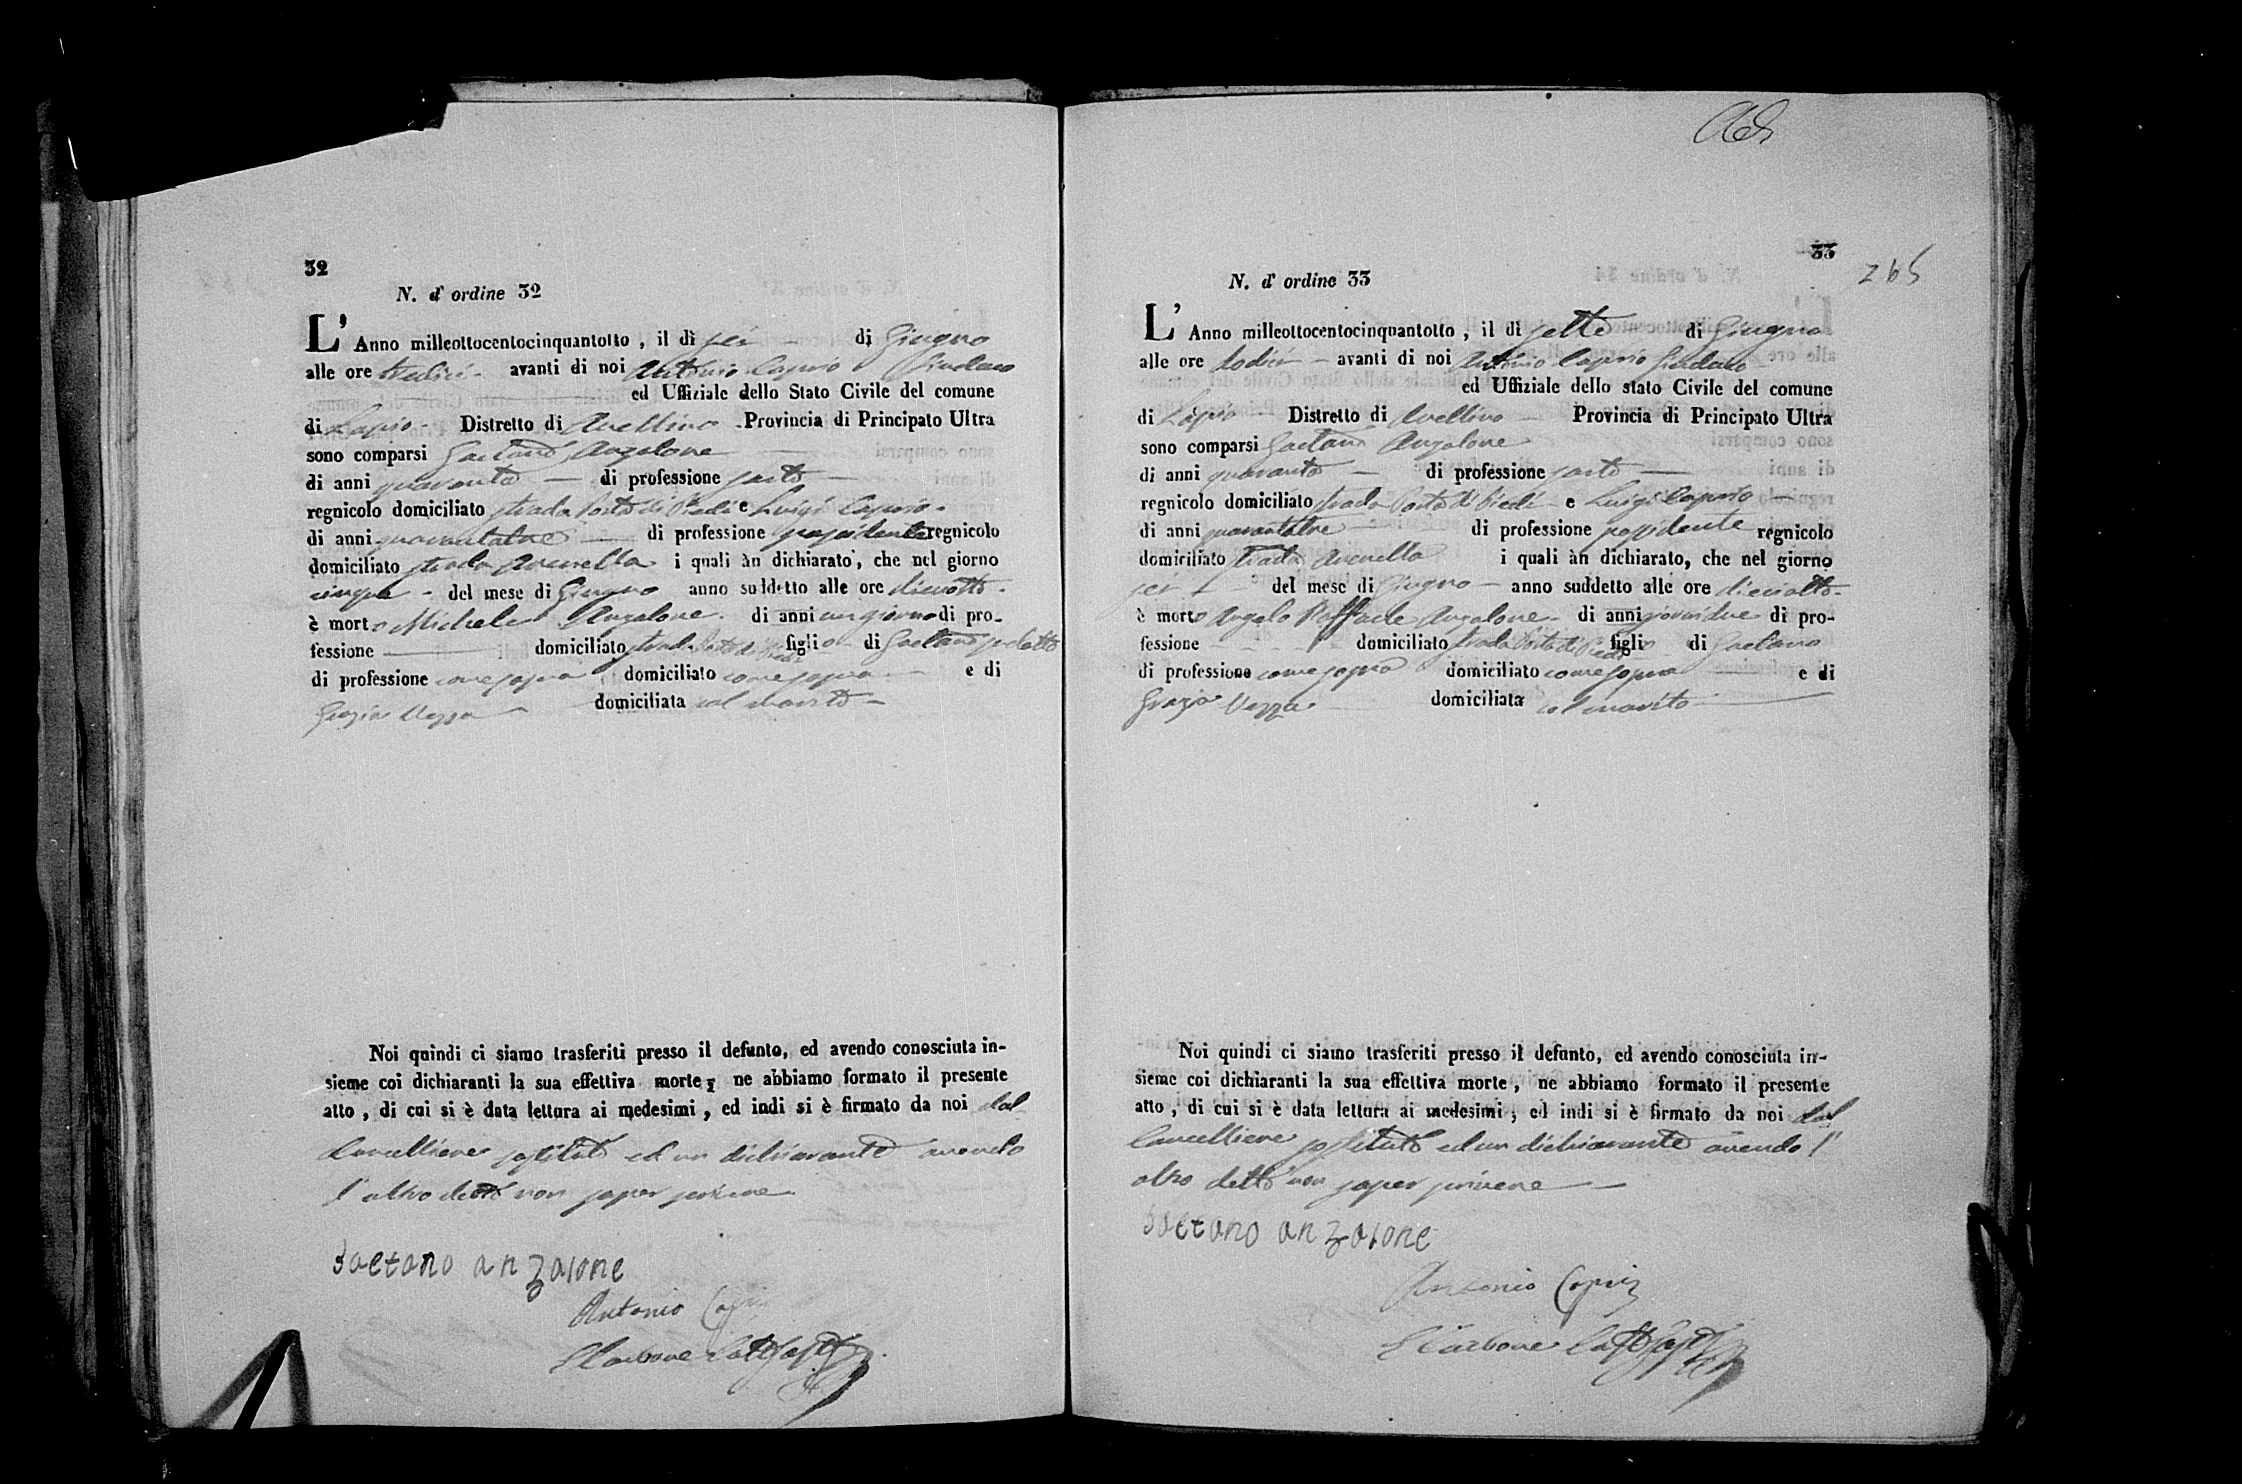 32
N. d' ordine 32
L' Anno milleottocentocinquantotto , il dì sei di Giugno
alle ore tredici avanti di noi Antonio Caprio Sindaco
ed Uffiziale dello Stato Civile del comune
di Lapio Distretto di Avellino Provincia di Principato Ultra
sono comparsi Gaetano Anzalone
di anni quaranta di professione sarto
regnicolo domiciliato strada Porta di Piedi e Luigi Caprio
di anni quarantatre di professione possidente regnicolo
domiciliato strada i quali àn dichiarato, che nel giorno
cinque del mese di Giugno anno suddetto alle ore dieciotto
è morto Michele Anzalone di anni un giorno di pro-
fessione domiciliato strada Porta di Piedi figlio di Gaetano
di professione come sopra domiciliato come sopra e di
Grazia Vozza domiciliata col marito
Noi quindi ci siamo trasferiti presso il defunto, ed avendo conosciuta in-
sieme coi dichiaranti la sua effettiva morte, ne abbiamo formato il presente
atto , di cui si è data lettura ai medesimi , ed indi si è firmato da noi dal
Cancelliere sostituto ed un dichiarante avendo
l'altro detto non saper scrivere
Gaetano anzalone
Antonio Caprio
Carbone
265
33
N. d' ordine 33
L' Anno milleottocentocinquantotto , il dì sette di Giugno
alle ore dodici avanti di noi Antonio Caprio Sindaco
ed Uffiziale dello stato Civile del comune
di Lapio Distretto di Avellino Provincia di Principato Ultra
sono comparsi Gaetano Anzalone
di anni quaranta di professione sarto
regnicolo domiciliato strada Porta di Piedi e Luigi Caprio
di anni quarantatre di professione possidente regnicolo
domiciliato strada i quali àn dichiarato, che nel giorno
sei del mese di Giugno anno suddetto alle ore dieciotto
è morto Angelo Raffaele Anzalone di anni giorni due di pro-
fessione domiciliato strada Porta di Piedi figlio di Gaetano
di professione come sopra domiciliato come sopra e di
Grazia Vozza domiciliata col marito
Noi quindi ci siamo trasferiti presso il defunto, ed avendo conosciuta in-
sieme coi dichiaranti la sua effettiva morte , ne abbiamo formato il presente
atto , di cui si è data lettura ai medesimi , ed indi si è firmato da noi dal
Cancelliere sostituto ed un dichiarante avendo l'
altro detto non saper scrivere
Gaetano anzalone
Antonio Caprio
Carbone